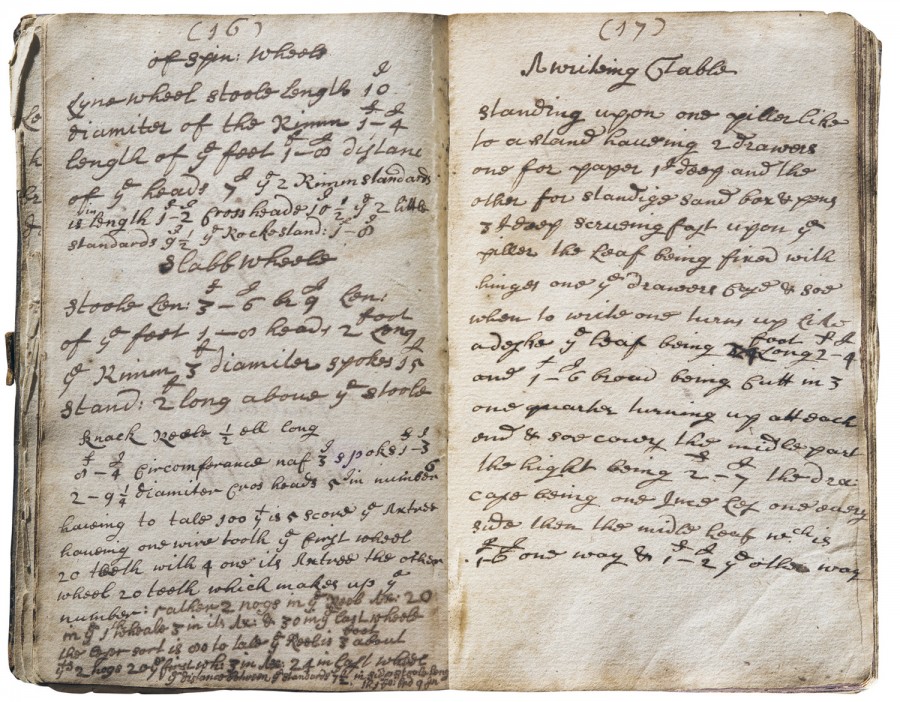 (16)
of Spin: Wheels
Lyne wheel stoole length 10 I
diamiter of the Rimm 1 f – 4 I
length of ye feet 1 f – 8 I distanc
of ye heads 7 I ye 2 Rimm standards
in length 1 f – 2 I Crossheads 10 I 1/2 ye 2 little
standards 9 I 1/2 ye Rockestand: 1 f – 8 I
Slabb wheele
Stoole Len: 3 f – 6 I br 9 I Len:
of ye feet 1 – 8 heads 2 foot Long
ye Rimm 3 f diamiter spokes 15 I
stand: 2 f long above ye stoole
Knack Reele 1/2 ell long
8 f – 4 I Circomferance naf 3 I spokes 1 f – 3 I
2 – 9 1/4 diamiter Cros heads 5 I in number 6
haveing to tale 100 yt is 5 score ye Axtree
haveing one wire tooth ye first wheel
20 teeth with 4 one its Axtree the other
wheel 20 teeth which makes up ye
number: rather 2 nogs in ye Reel Ax: 20
in ye 1 wheale 3 in its Ax: & 30 in ye last wheele
the Coper sort is 80 to tale ye Reel is 3 foot about
its 2 nogs 20 ye first wh: 3 in Ax: 24 in last wheel
ye distance betwixt ye standards 7 1/2
(17)
A writeing Table
standing upon one piller like
to a stand haveing 2 drawers
one for paper 1 I deep and the
other for standige sand box & pens
3 I deep scrueing fast upon ye
piller the Leaf being fixed with
hinges one ye drawers Cyd & soe
when to write one turns up like
a deske ye leaf being foot Long 2 f – 4 I
and 1 f – 6 I broad being Cutt in 3
one quarter turning up att each
end & soe cover ye middle part
the hight being 2 f – 7 I the dra:
case being one Ince Les one every
side then the midle leaf wch is
1 f – 6 I one way & 1 f – 2 I ye other way